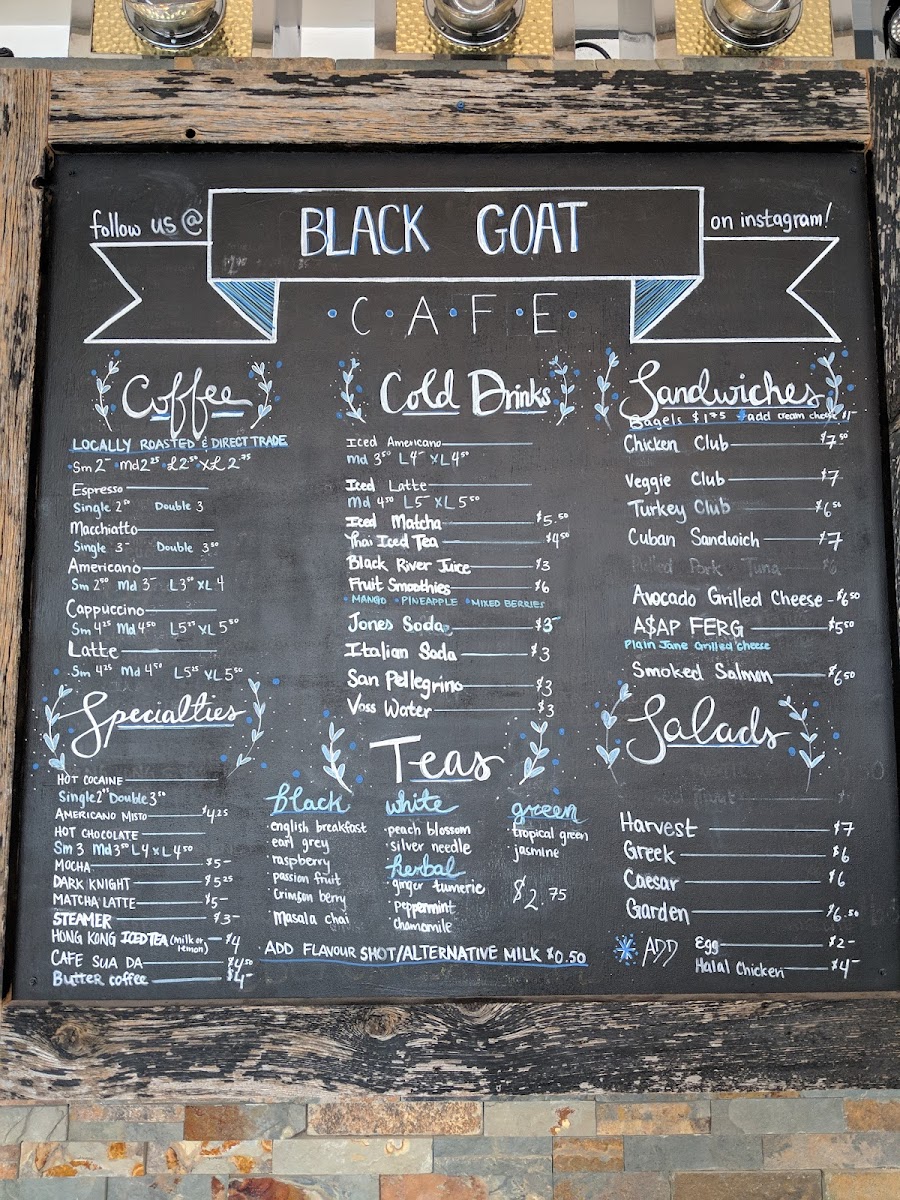 follow us @ BLACK GOAT on instagram!
CAFE
Coffee
LOCALLY ROASTED & DIRECT TRADE
Sm 2 md 2.25 L 2.50 XL 2.75
Espresso
Single 2.50 Double 3
Macchiatto
Single 3 Double 3.50
Americano
Sm 2.50 Md 3 L 3.50 XL 4
Cappuccino
Sm 4.25 Md 4.50 L 5.25 XL 5.50
Latte
Sm 4.25 Md 4.50 L 5.25 XL 5.50
Specialties
HOT COCAINE
Single 2 Double 3.50
AMERICANO MISTO $4.25
HOT CHOCOLATE
Sm 3 Md 3.50 L 4 XL 4.50
MOCHA $5
DARK KNIGHT $5.25
MATCHA LATTE $5
STEAMER $3
HONG KONG ICED TEA (milk or lemon) $4
CAFE SUA DA $4.50
Butter coffee $4
Cold Drinks
Iced Americano
Md 3.50 L 4 XL 4.50
Iced Latte
Md 4.50 L 5 XL 5.50
Iced Matcha $5.50
Thai Iced Tea $4.50
Black River Juice $3
Fruit Smoothies $6
• MANGO • PINEAPPLE • MIXED BERRIES
Jones Soda $3
Italian Soda $3
San Pellegrino $3
Voss Water $3
Teas
black
• english breakfast
• earl grey
• raspberry
• passion fruit
• Crimson berry
• Masala chai
white
• peach blossom
• silver needle
herbal
• ginger tumeric
• peppermint
• chamomile
green
tropical green
jasmine
$2.75
ADD FLAVOUR SHOT/ALTERNATIVE MILK $0.50
Sandwiches
Bagels $1.75 add cream cheese $1
Chicken Club $7.50
Veggie Club $7
Turkey Club $6.50
Cuban Sandwich $7
Pulled Pork Tuna $6
Avocado Grilled Cheese $6.50
A$AP FERG $5.50
Plain Jane Grilled Cheese
Smoked Salmon $6.50
Salads
Harvest $7
Greek $6
Caesar $6
Garden $6.50
* ADD Egg $2
Halal Chicken $4